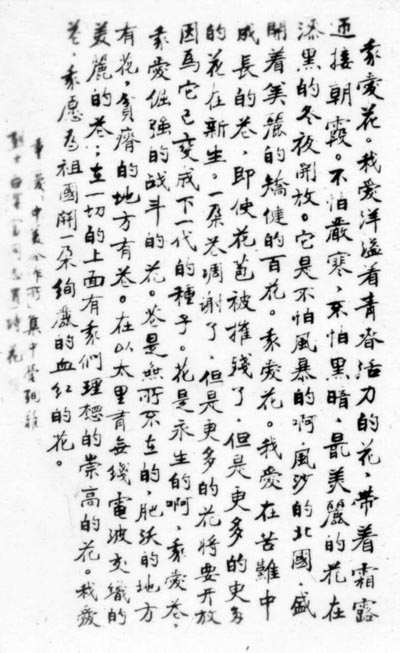 我愛花。我爱洋溢着青春活力的花，帶着霜露
迎接朝霞。不怕嚴寒，不怕黑暗，最美麗的花在
漆黑的冬夜開放。它是不怕風暴的啊，風沙的北國，盛
開着美麗的矯健的百花。我愛花。我愛在苦難中
成長的花，即使花苞被摧殘了，但是更多的更多
的花在新生。一朵花凋謝了，但是更多的花將要开放
因爲它已变成下一代的種子。花是永生的啊，我愛花，
我愛倔強的战斗的花。花是無所不在的，肥沃的地方
有花，貧瘠的地方有花。在以太里有無綫電波交織的
美麗的花；在一切的上面有我們理想的崇高的花。我愛
花，我愿爲祖國開一朵絢麗的血红的花。
中美合作所集中營